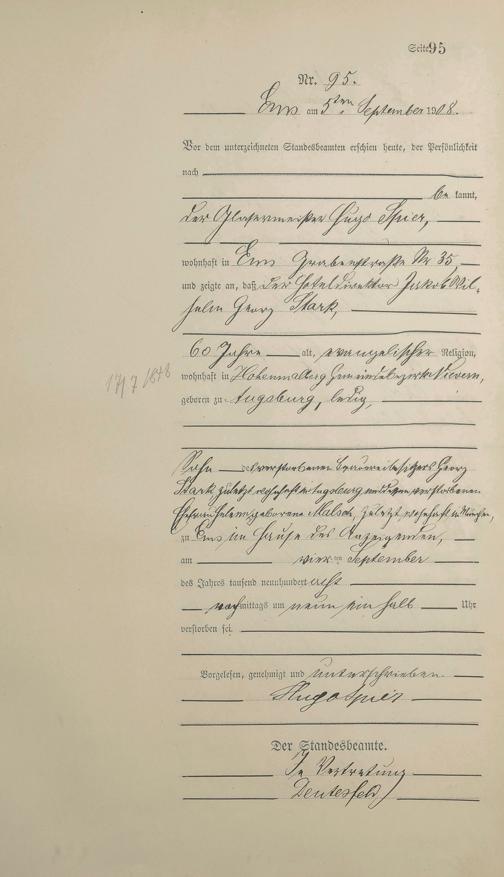 Seite 95
Nr. 95.
Ems am 5ten September 1908.
Vor dem unterzeichneten Standesbeamten erschien heute, der Persönlichkeit
nach
bekannt,
der Glasermeister Hugo Spier,
wohnhaft in Ems Grabenstraße Nr 35
und zeigte an, daß der Hoteldirektor Jakob Wil-
helm Georg Stark,
60 Jahre alt, evangelischer Religion,
wohnhaft in Hohenmalberg Gemeindebezirk Nievern,
17/7 1848
geboren zu Augsburg, ledig,
Sohn des verstorbenen Brauereibesitzers Georg
Stark zuletzt wohnhaft in Augsburg und dessen verstorbenen
Ehefrau Helene geborene Malsch, zuletzt wohnhaft in München,
zu Ems im Hause des Anzeigenden,
am vierten September
des Jahres tausend neunhundert acht
nachmittags um neun ein halb Uhr
verstorben sei.
Vorgelesen, genehmigt und unterschrieben
Hugo Spier
Der Standesbeamte.
In Vertretung